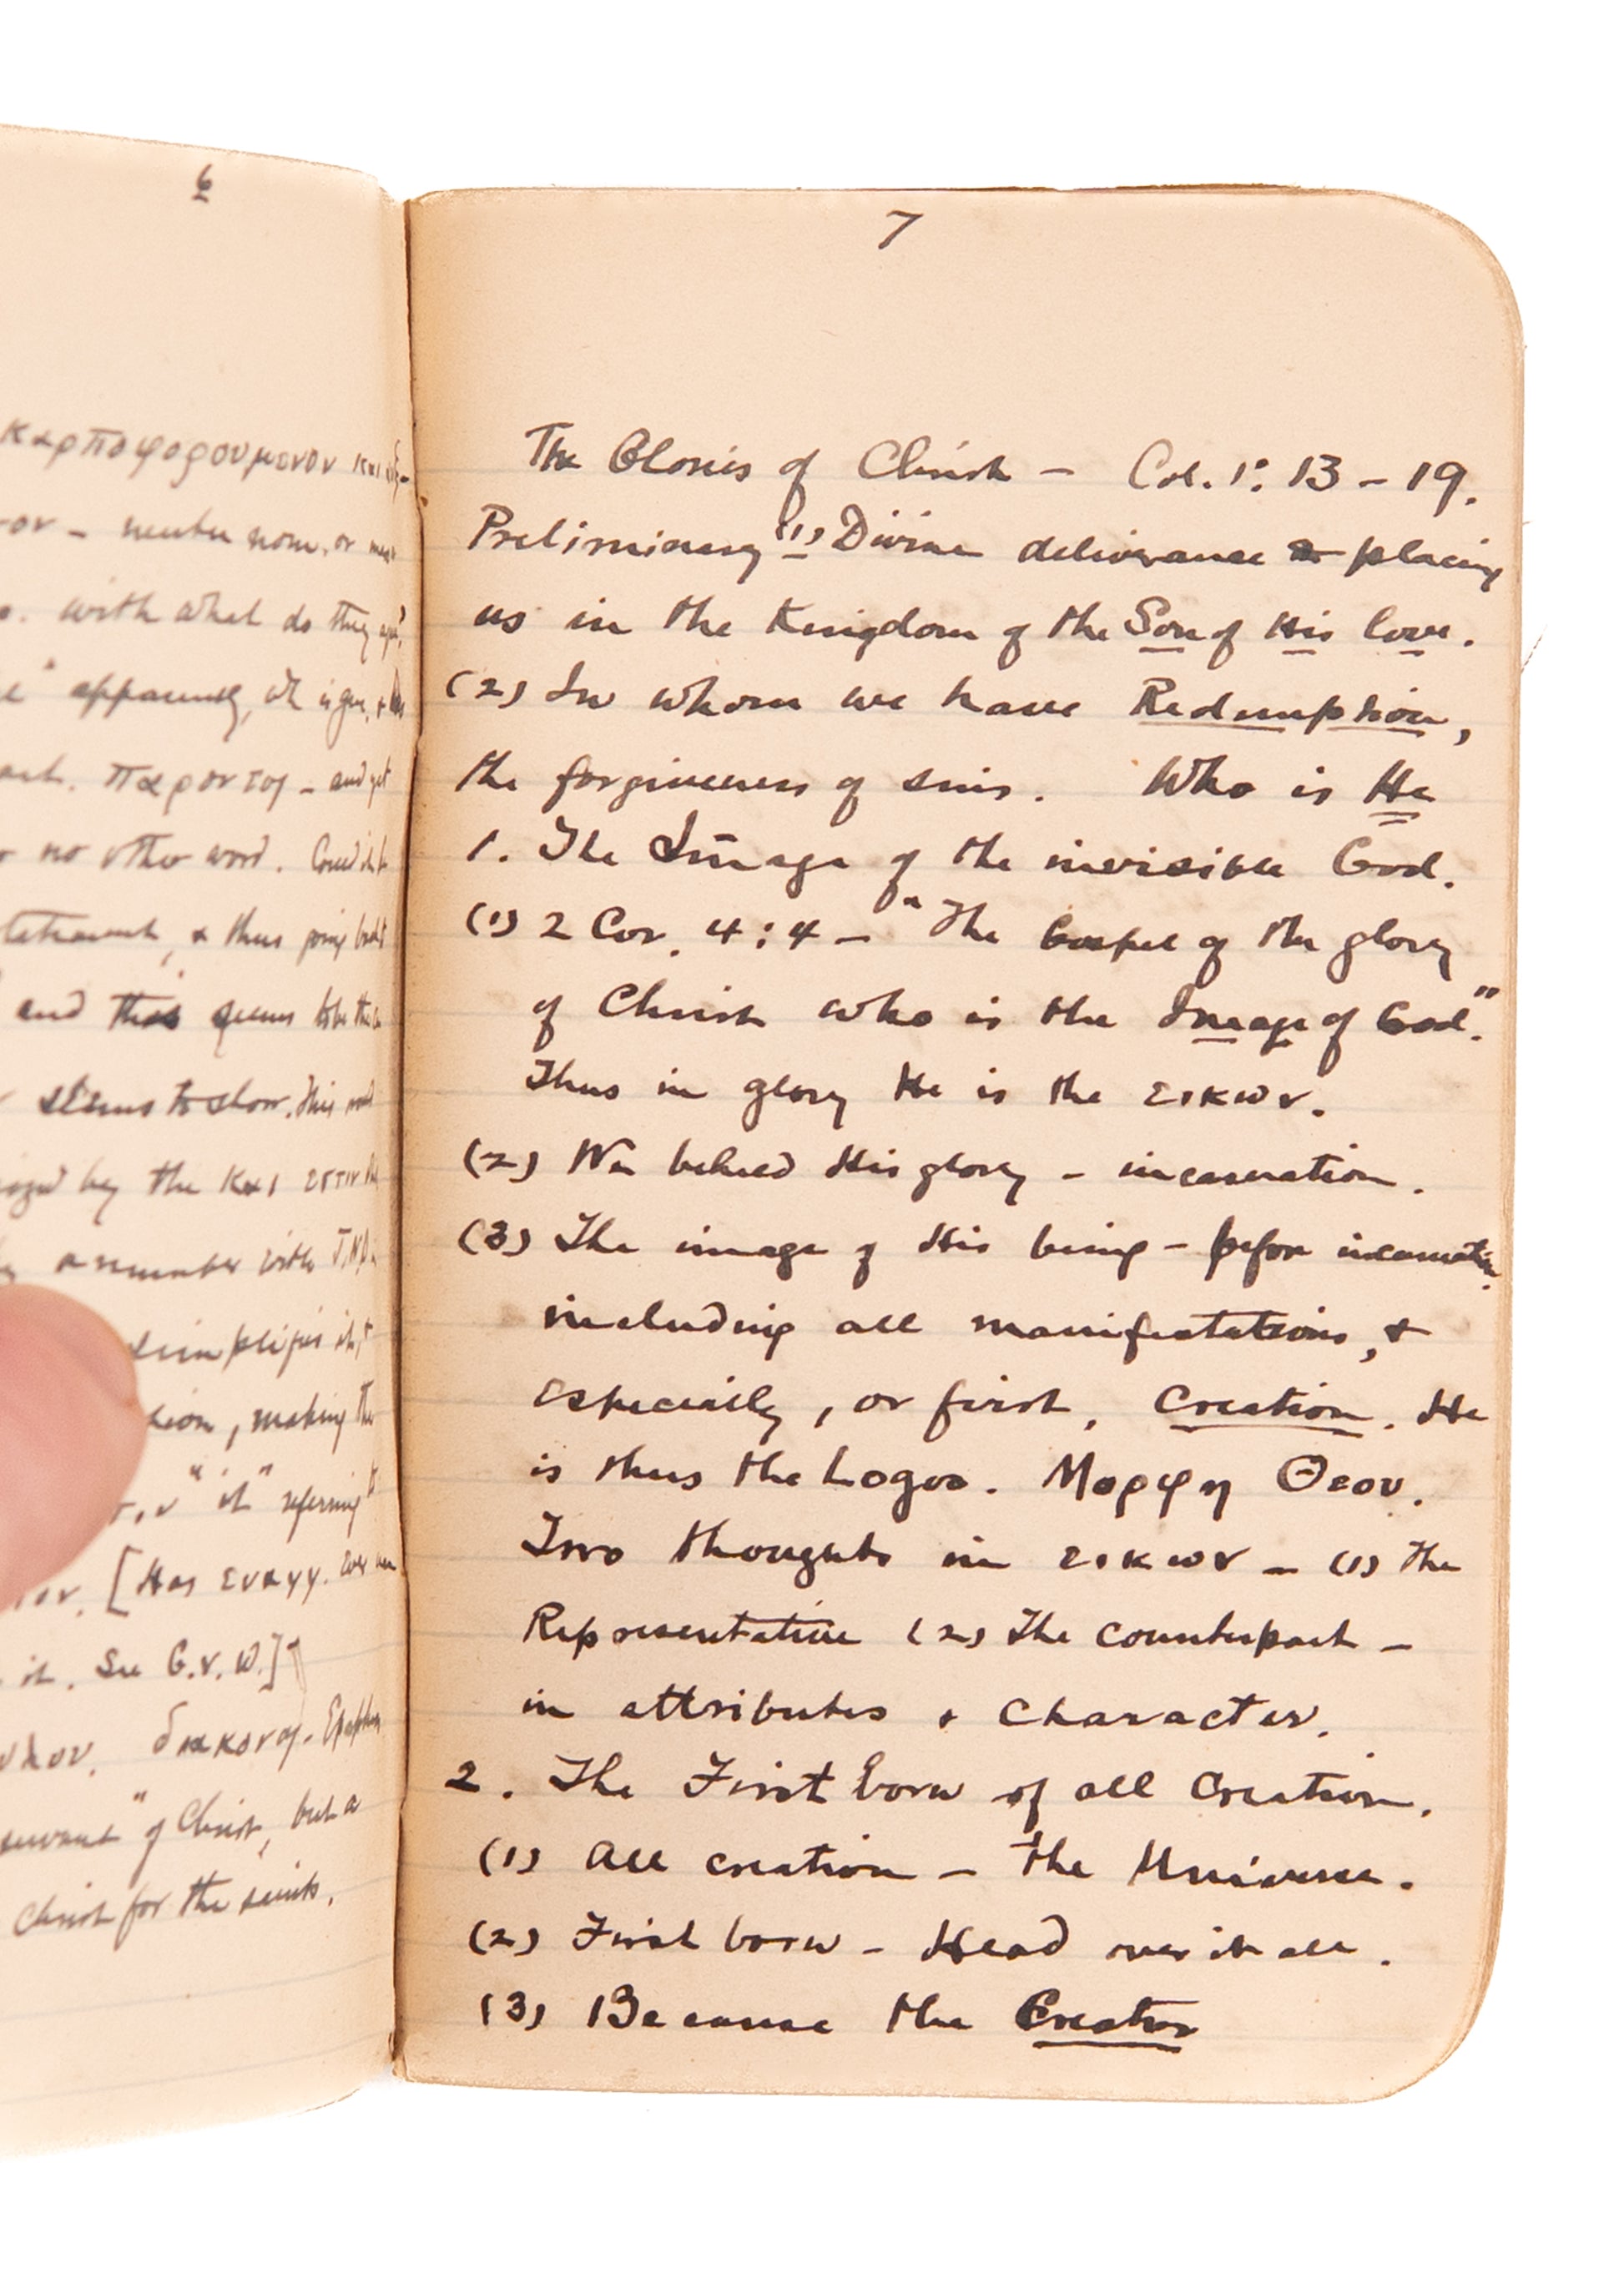 6
καρποφορουμενον και
ον – neuter nom. or
. with what do they
" apparently, it is gen. +
παροντος – and yet
no other word. Could it
, & thus going back
and this seems to be the
seems to show. This
by the και εστιν
a number with J.N.D.
simplifies it, +
, making the
" it " referring to
[Has ευαγγ. ever
it. See G.V.W.]
διακονος – Epaphras
servant " of Christ, but a
Christ for the saints.
7
The Glories of Christ – Col. 1: 13 – 19.
Preliminary (1) Divine deliverance placing
us in the Kingdom of the Son of His love.
(2) In whom we have Redemption,
the forgiveness of sins. Who is He
1. The Image of the invisible God.
(1) 2 Cor. 4:4 – "The Gospel of the glory
of Christ who is the Image of God."
Thus in glory He is the εικων.
(2) We beheld His glory – incarnation.
(3) The image of His being – before incarnation
including all manifestations, &
especially, or first, Creation. He
is thus the Logos. Μορφη Θεου.
Two thoughts in εικων – (1) The
Representative (2) The counterpart –
in attributes & character.
2. The First born of all Creation.
(1) All creation – the Universe.
(2) First born – Head over it all.
(3) Because the Creator